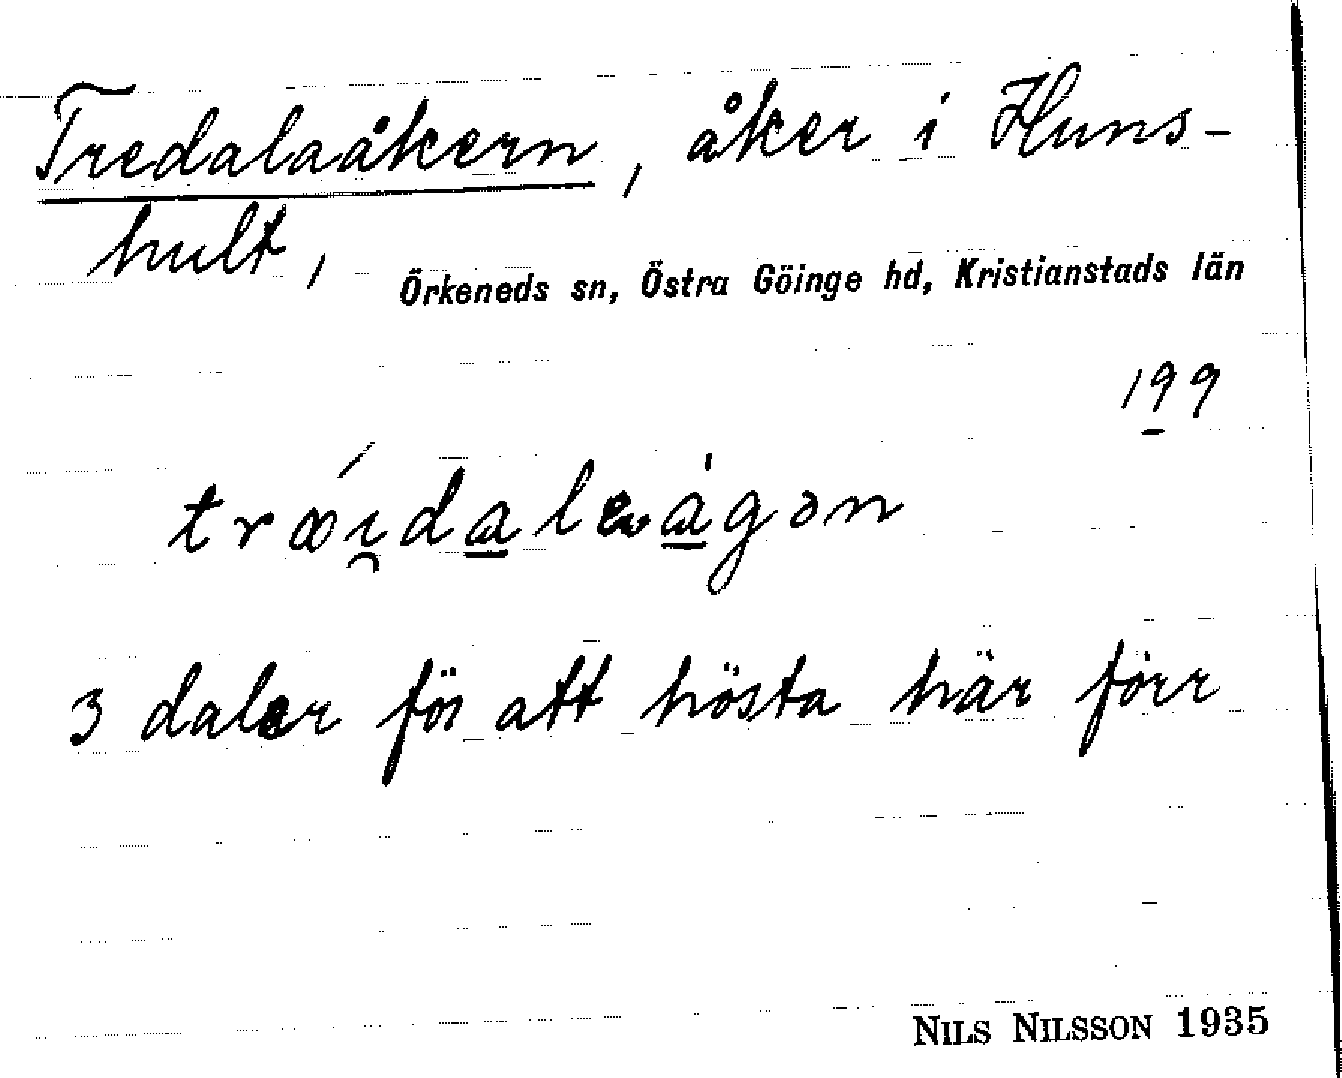 Tredalaåkern, åker i Huns-
hult,
Örkeneds sn, Östra Göinge hd, Kristianstads län
199
3 daler för att hösta här förr
NILS NILSSON 1935